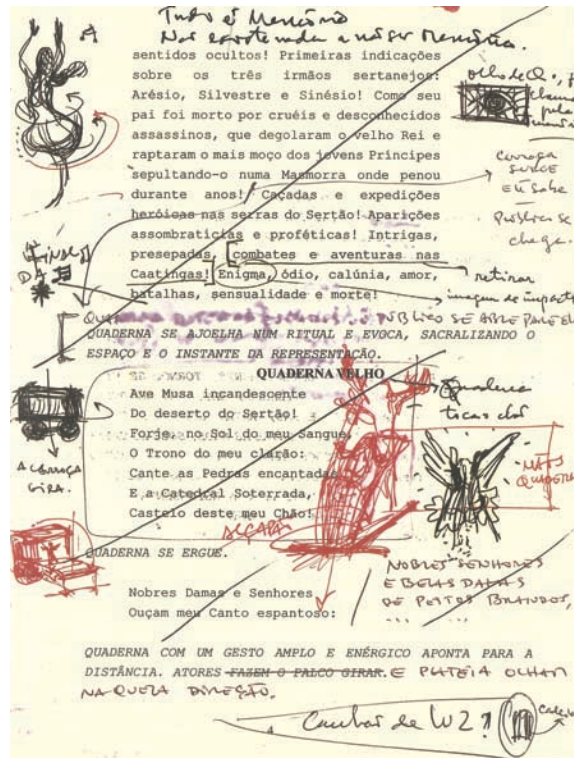 Tudo é Memória
sentidos ocultos! Primeiras indicações
sobre os três irmãos sertanejos:
Arésio, Silvestre e Sinésio! Como seu
pai foi morto por cruéis e desconhecidos
assassinos, que degolaram o velho Rei e
raptaram o mais moço dos jovens Príncipes
sepultando-o numa Masmorra onde penou
durante anos! Caçadas e expedições
heróicas nas serras do Sertão! Aparições
assombratícias e proféticas! Intrigas,
presepadas, combates e aventuras nas
Caatingas! Enigma, ódio, calúnia, amor,
batalhas, sensualidade e morte!
retirar
PÚBLICO SE ABRE PARA ELE
QUADERNA SE AJOELHA NUM RITUAL E EVOCA, SACRALIZANDO O
ESPAÇO E O INSTANTE DA REPRESENTAÇÃO.
QUADERNA VELHO
Ave Musa incandescente
Do deserto do Sertão!
Forje, no Sol do meu Sangue,
O Trono do meu clarão:
Cante as Pedras encantadas
E a Catedral Soterrada,
Castelo deste meu Chão!
A CARROÇA
GIRA.
MÃOS
QUADERNA
ALÇAPÃO
QUADERNA SE ERGUE.
NOBRES SENHORES
E BELAS DAMAS
DE PEITOS BRANDOS,
Nobres Damas e Senhores
Ouçam meu Canto espantoso:
QUADERNA COM UM GESTO AMPLO E ENÉRGICO APONTA PARA A
DISTÂNCIA. ATORES FAZEM O PALCO GIRAR. E PLATEIA OLHAM
NAQUELA DIREÇÃO.
4
Canhão de LUZ?